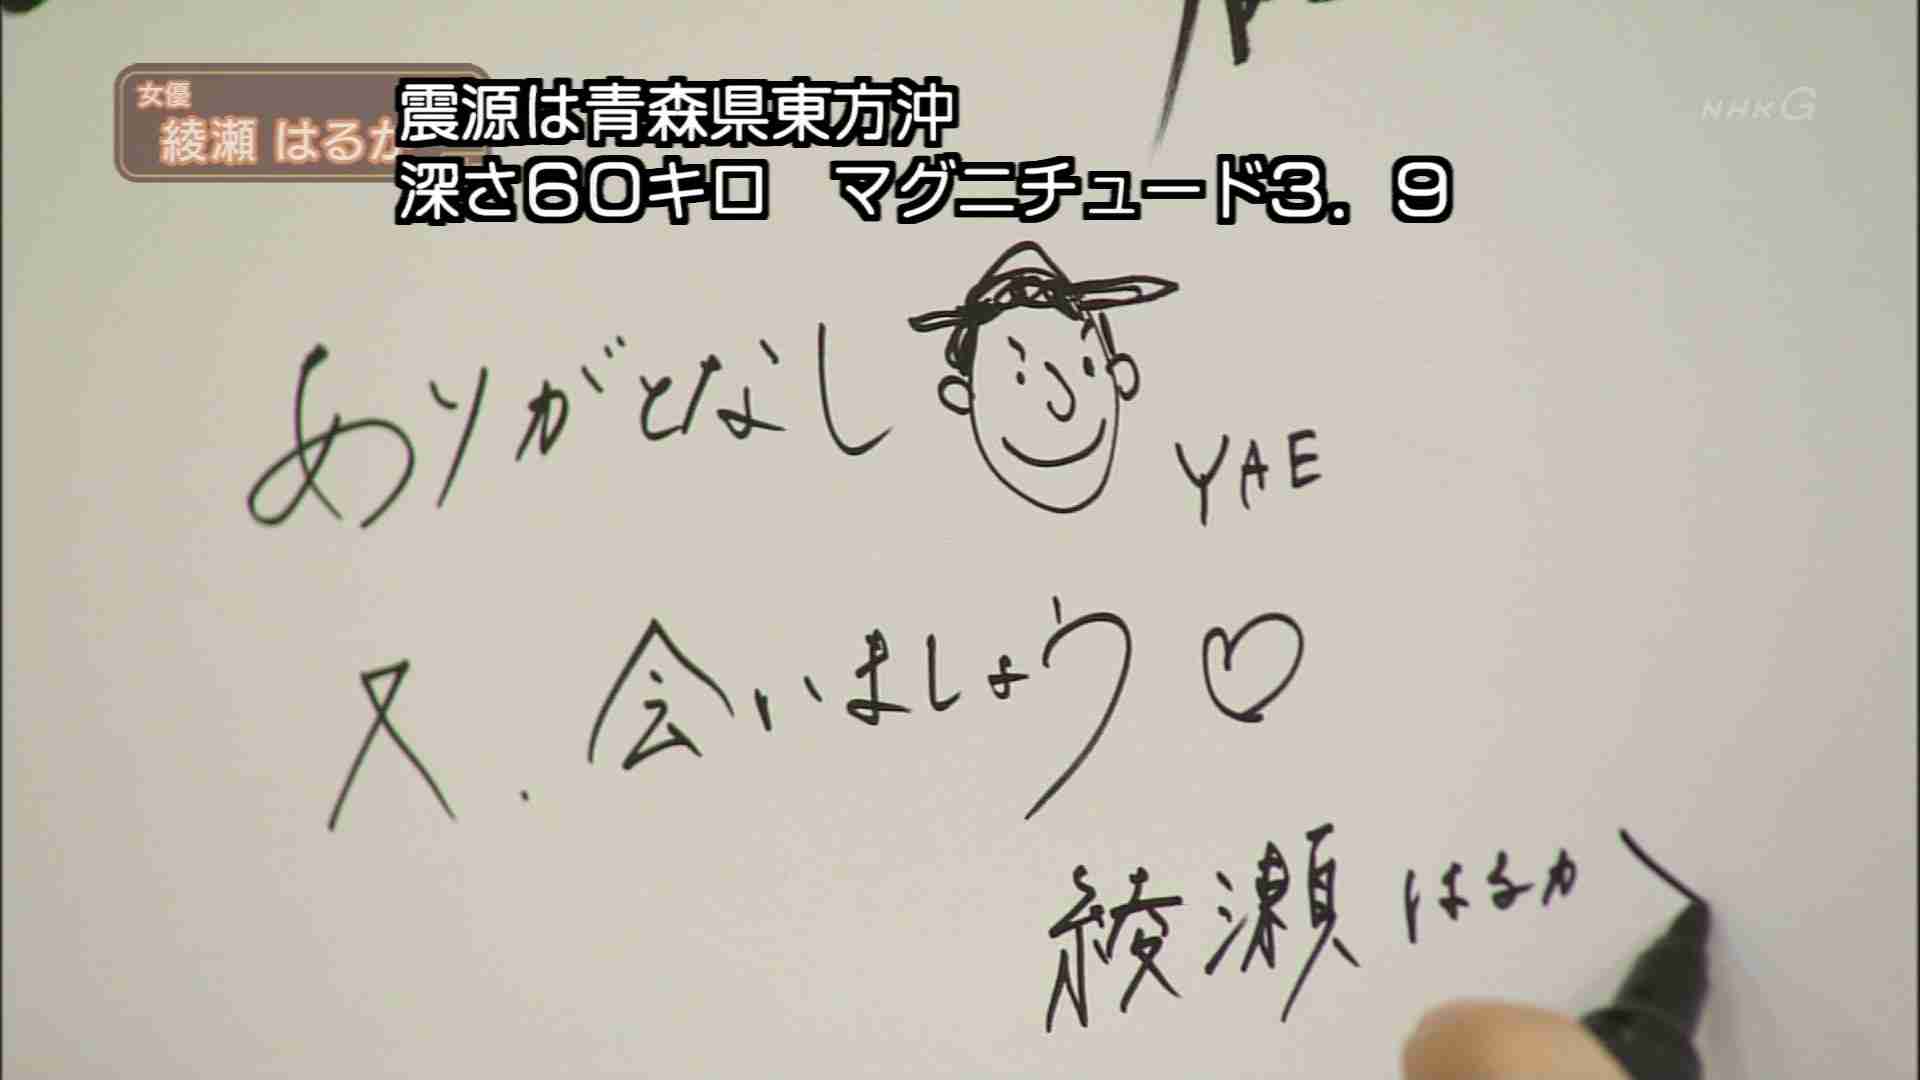 女優
綾瀬 はるか
震源は青森県東方沖
深さ60キロ　マグニチュード3．9
NHK G
ありがとなし
YAE
又、会いましょう♡
綾瀬はるか